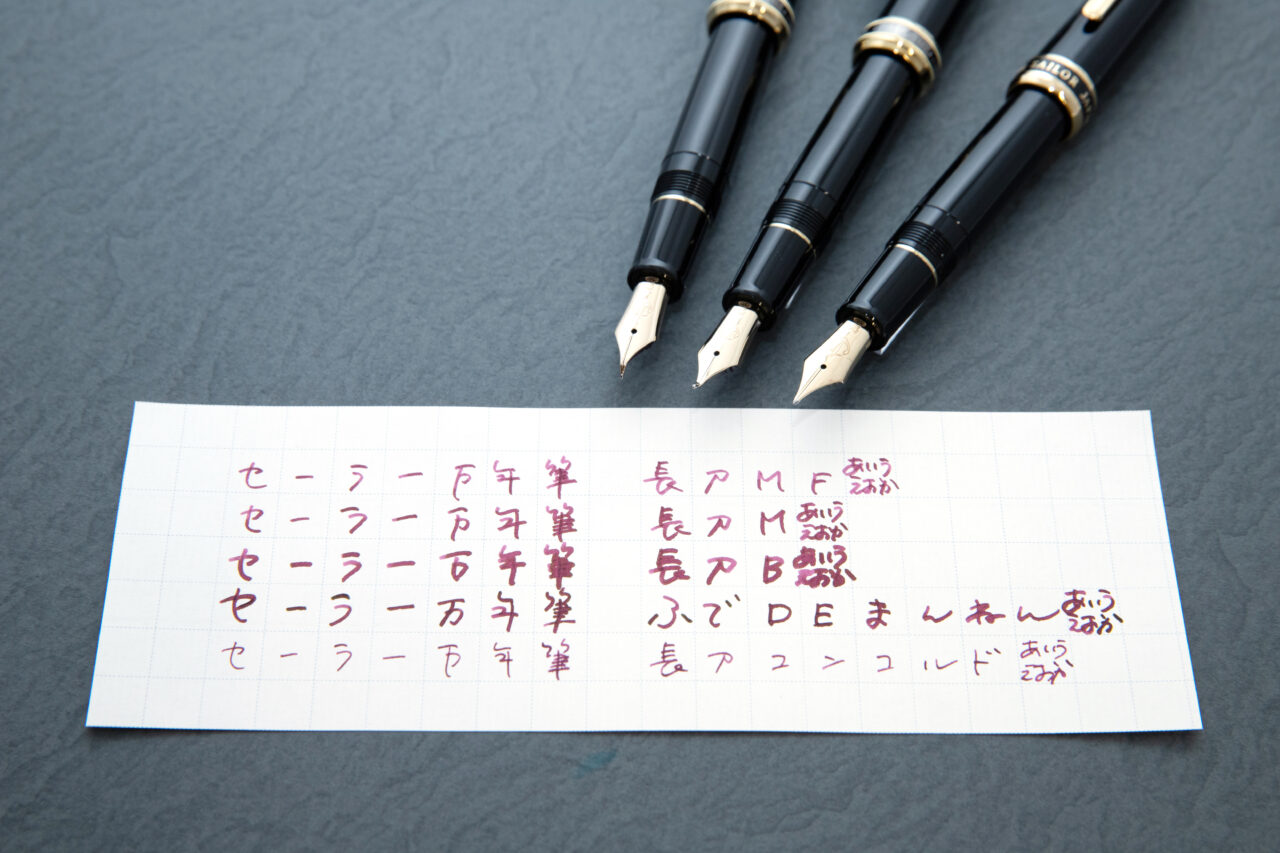 SAILOR JA
セーラー万年筆 長刀MF あいうえおか
セーラー万年筆 長刀M あいうえおか
セーラー万年筆 長刀B あいうえおか
セーラー万年筆 ふでDEまんねん あいうえおか
セーラー万年筆 長刀コンコルド あいうえおか